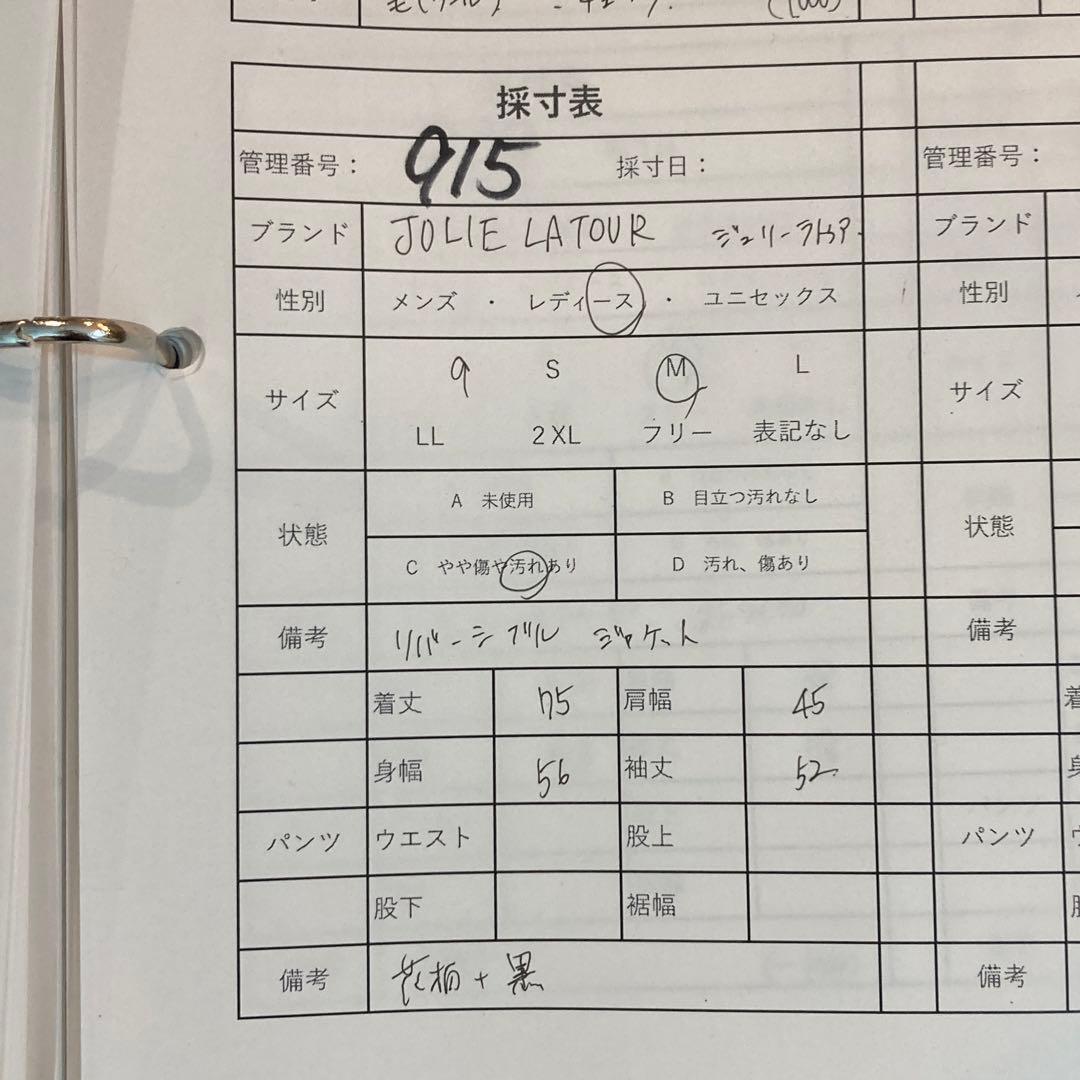 採寸表
管理番号： 915 採寸日：
管理番号：
ブランド JOLIE LATOUR ジュリーラトゥア
ブランド
性別 メンズ ・ レディース ・ ユニセックス
性別
サイズ 9 S M L
LL 2XL フリー 表記なし
サイズ
状態 A 未使用 B 目立つ汚れなし
C やや傷や汚れあり D 汚れ、傷あり
状態
備考 リバーシブル ジャケット
備考
着丈 75 肩幅 45
身幅 56 袖丈 52
パンツ ウエスト 股上
パンツ
股下 裾幅
備考 花柄 + 黒
備考